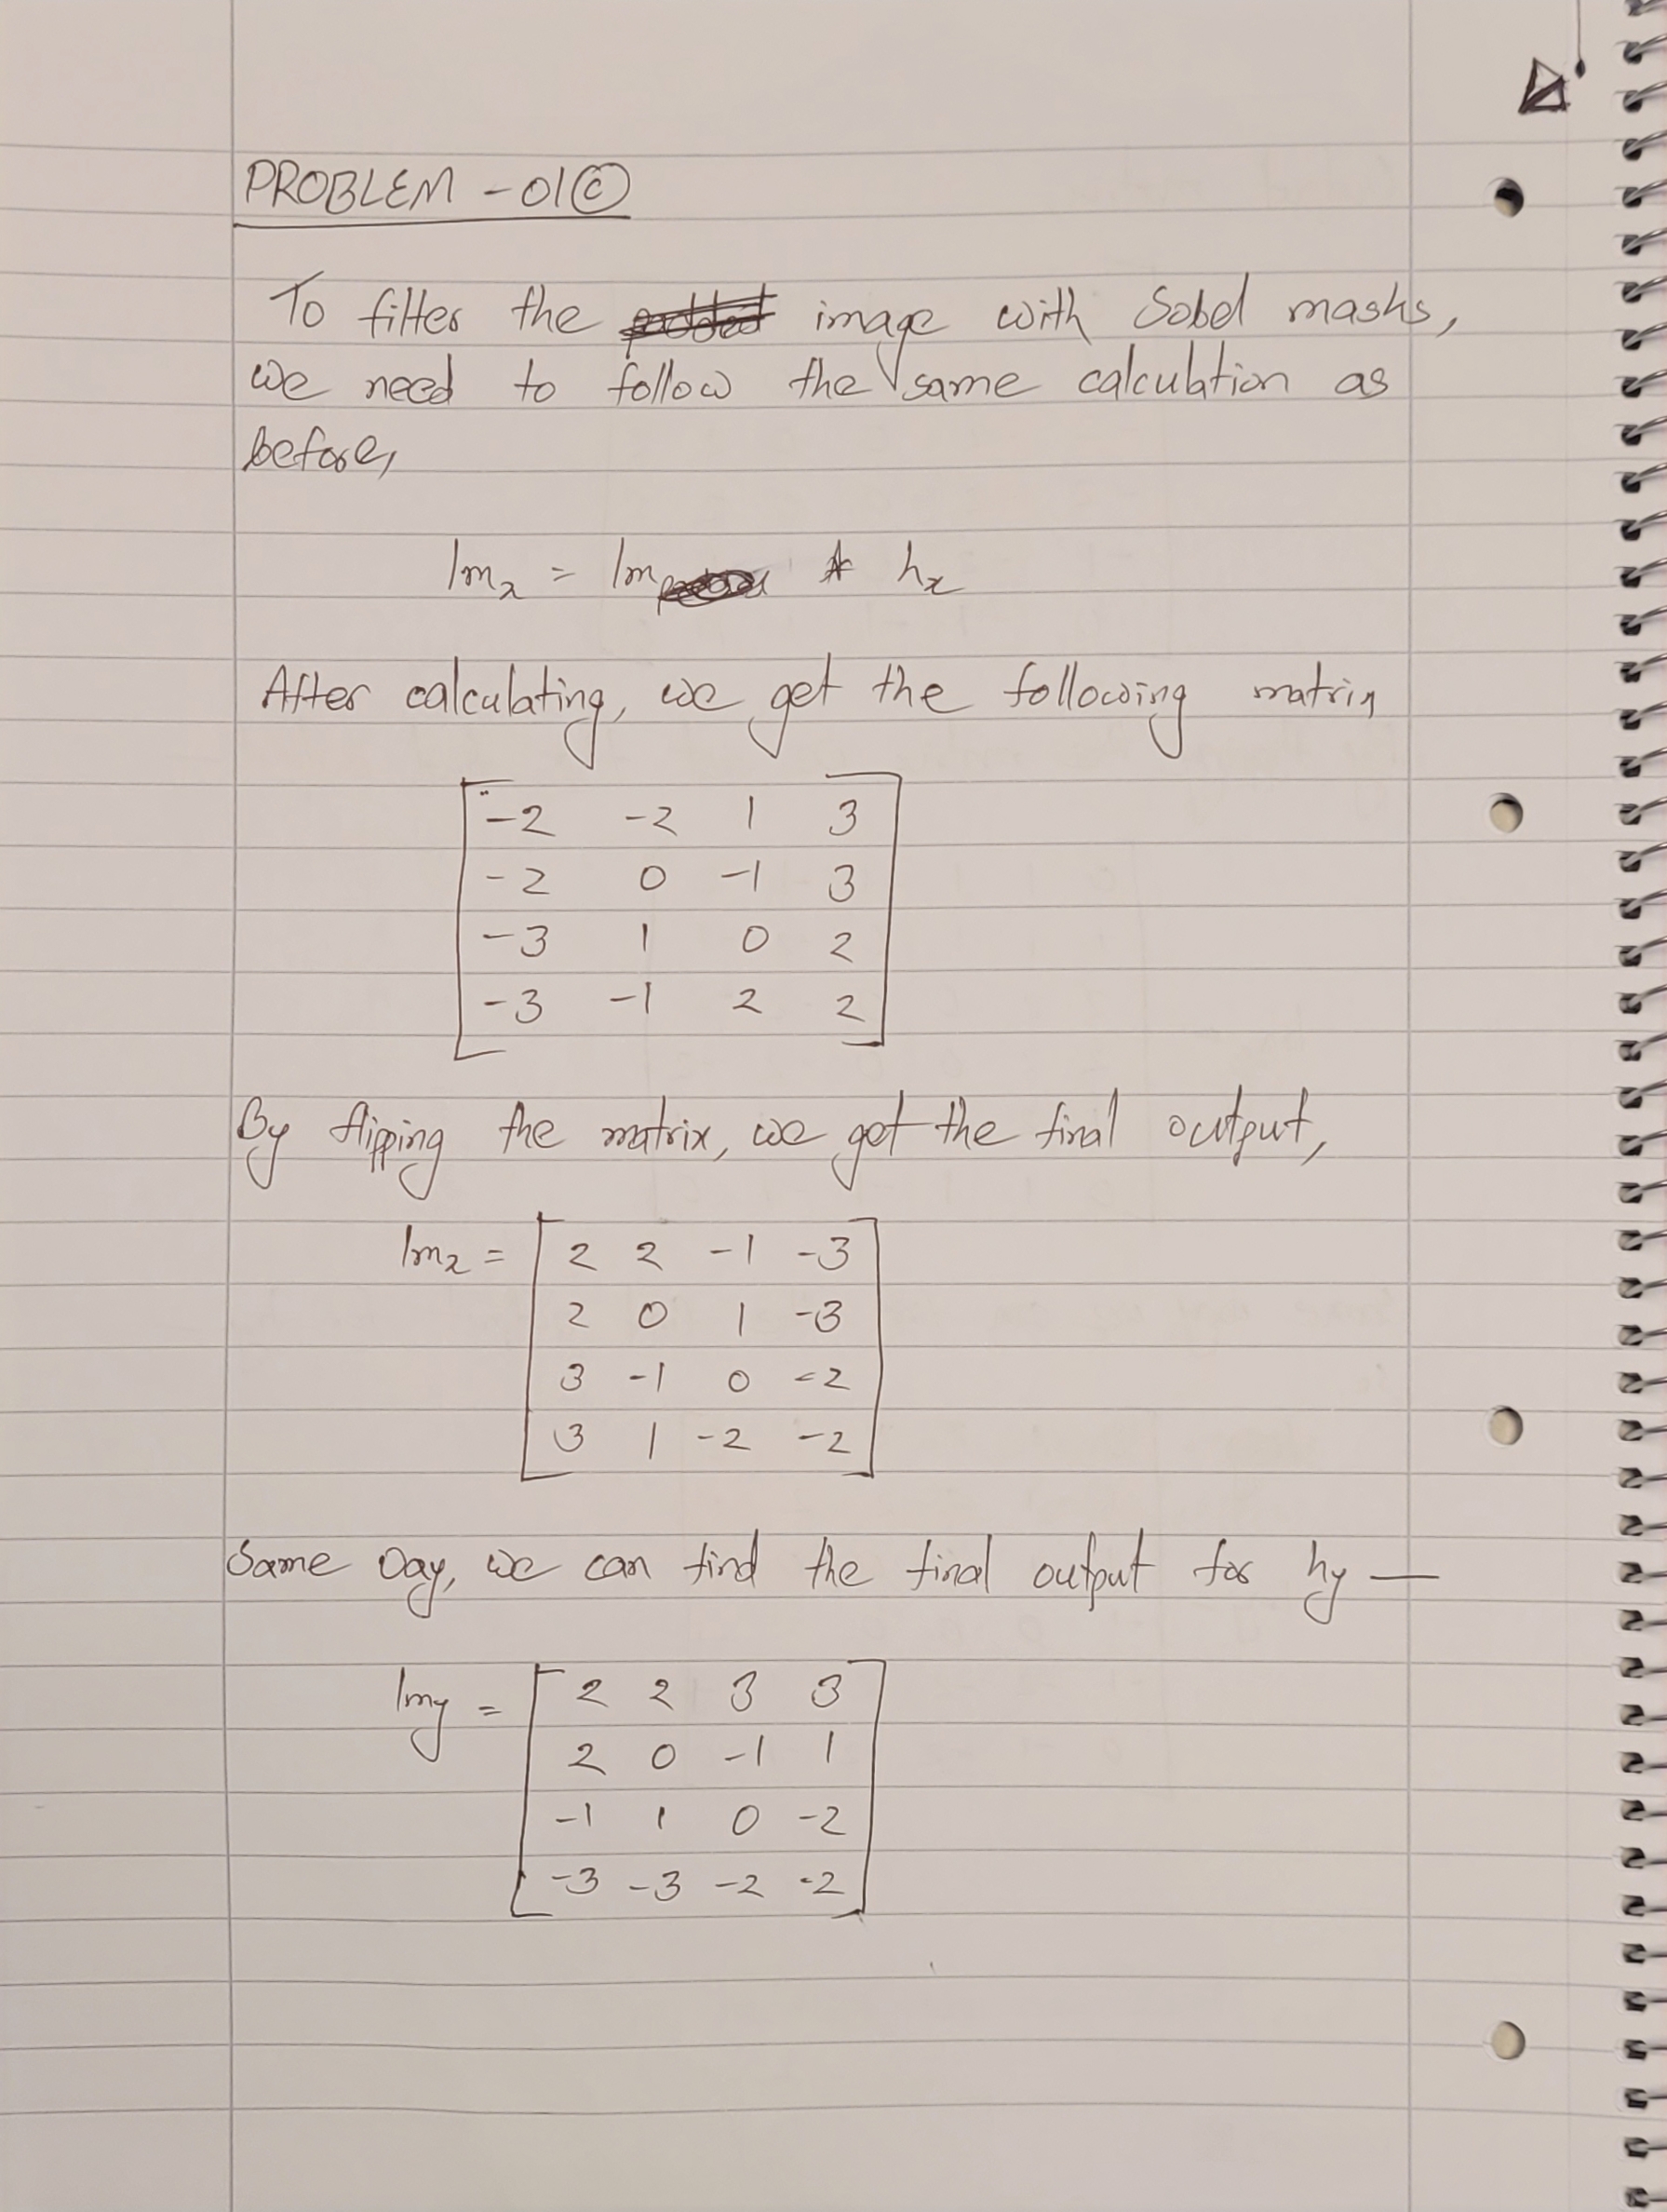 PROBLEM - 01 ©
To filter the image with Sobel masks,
we need to follow the same calculation as
before,
Im_x = Im * h_x
After calculating, we get the following matrix
-2 -2 1 3
-2 0 -1 3
-3 1 0 2
-3 -1 2 2
By flipping the matrix, we get the final output,
Im_x = 2 2 -1 -3
2 0 1 -3
3 -1 0 -2
3 1 -2 -2
Same Way, we can find the final output for h_y —
Im_y = 2 2 3 3
2 0 -1 1
-1 1 0 -2
-3 -3 -2 -2